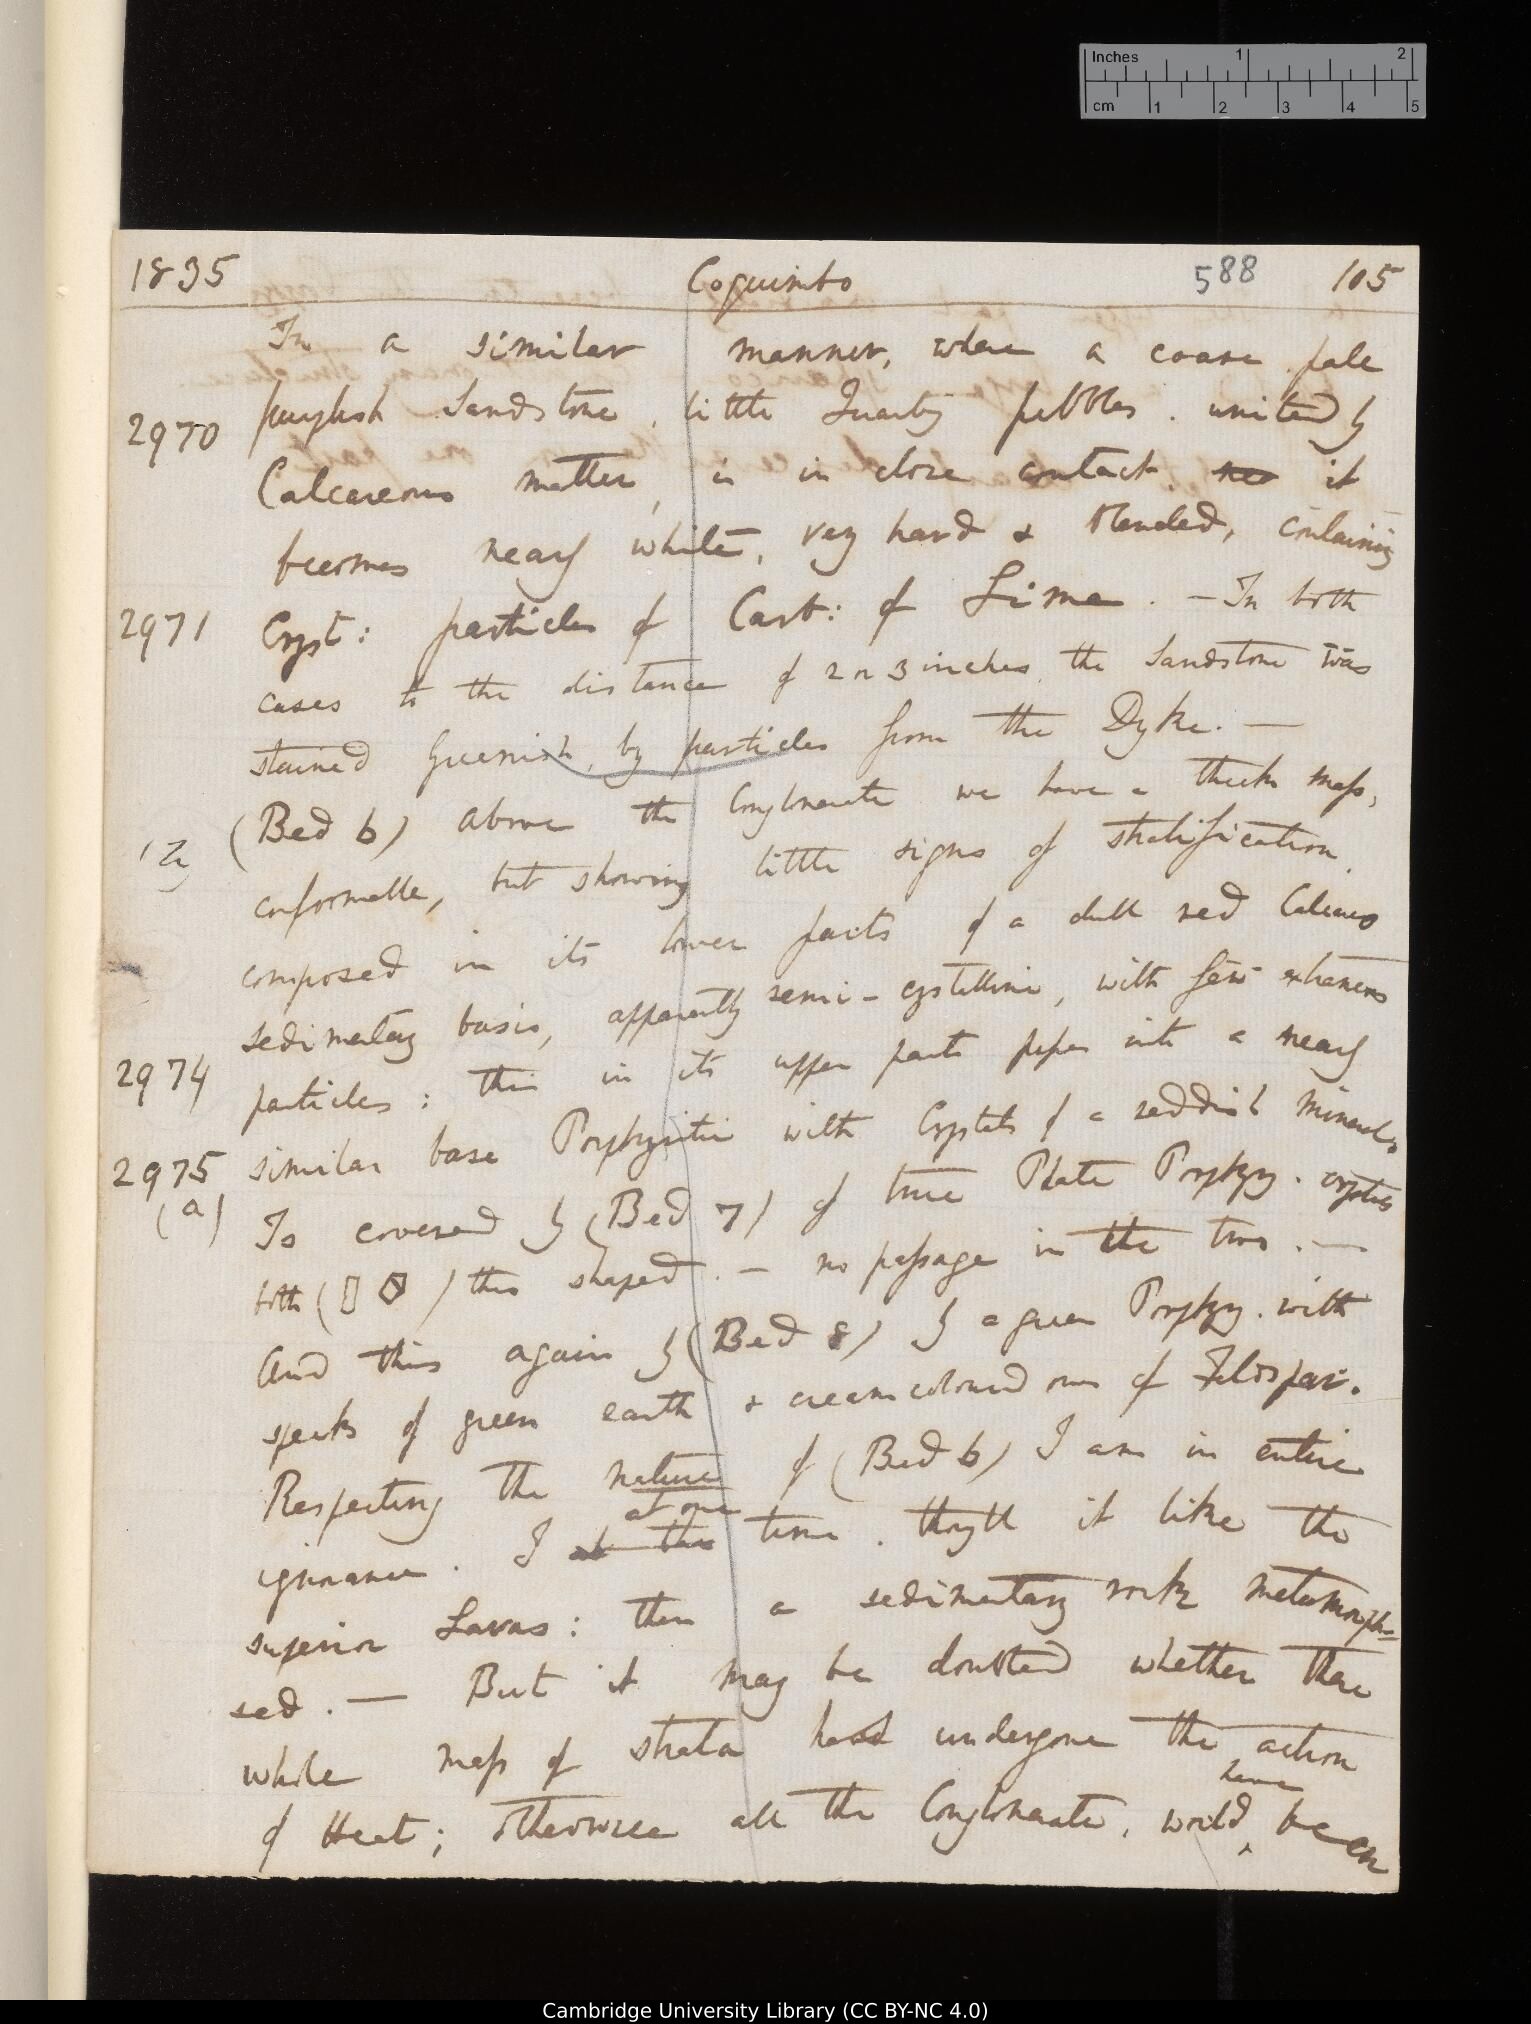 Inches 1 2
cm 1 2 3 4 5
1835 Coquimbo 588 105
In a similar manner, where a coarse pale
2970 purplish Sandstone, little Quartz pebbles, united by
Calcareous matter, is in close contact, it
becomes nearly white, very hard & blended, containing
2971 Cryst: particles of Carb: of Lime. — In both
cases to the distance of 2 or 3 inches, the Sandstone was
stained greenish, by particles from the Dyke. —
(Bed 6) Above the Conglomerate we have a thick mass,
conformable, but showing little signs of stratification,
composed in its lower parts of a dull red Calcareo
sedimentary basis, apparently semi-crystalline, with few extraneous
2974 particles: this in its upper parts passes into a nearly
2975 similar base Porphyritic with Crystals of a reddish mineral,
(a) Is covered by (Bed 7) of true Plate Porphyry. crystals
both (▯ ◇) thus shaped. — no passage in the two. —
And this again by (Bed 8) by a green Porphyry. with
specks of green earth & cream coloured ones of Feldspar.
Respecting the nature of (Bed 6) I am in entire
at one
ignorance. I at this time, thought it like the
superior Lavas: then a sedimentary rock metamorpho-
sed. — But it may be doubted whether the
whole mass of strata had undergone the action
have
of Heat; otherwise all the Conglomerate, would been
Cambridge University Library (CC BY-NC 4.0)